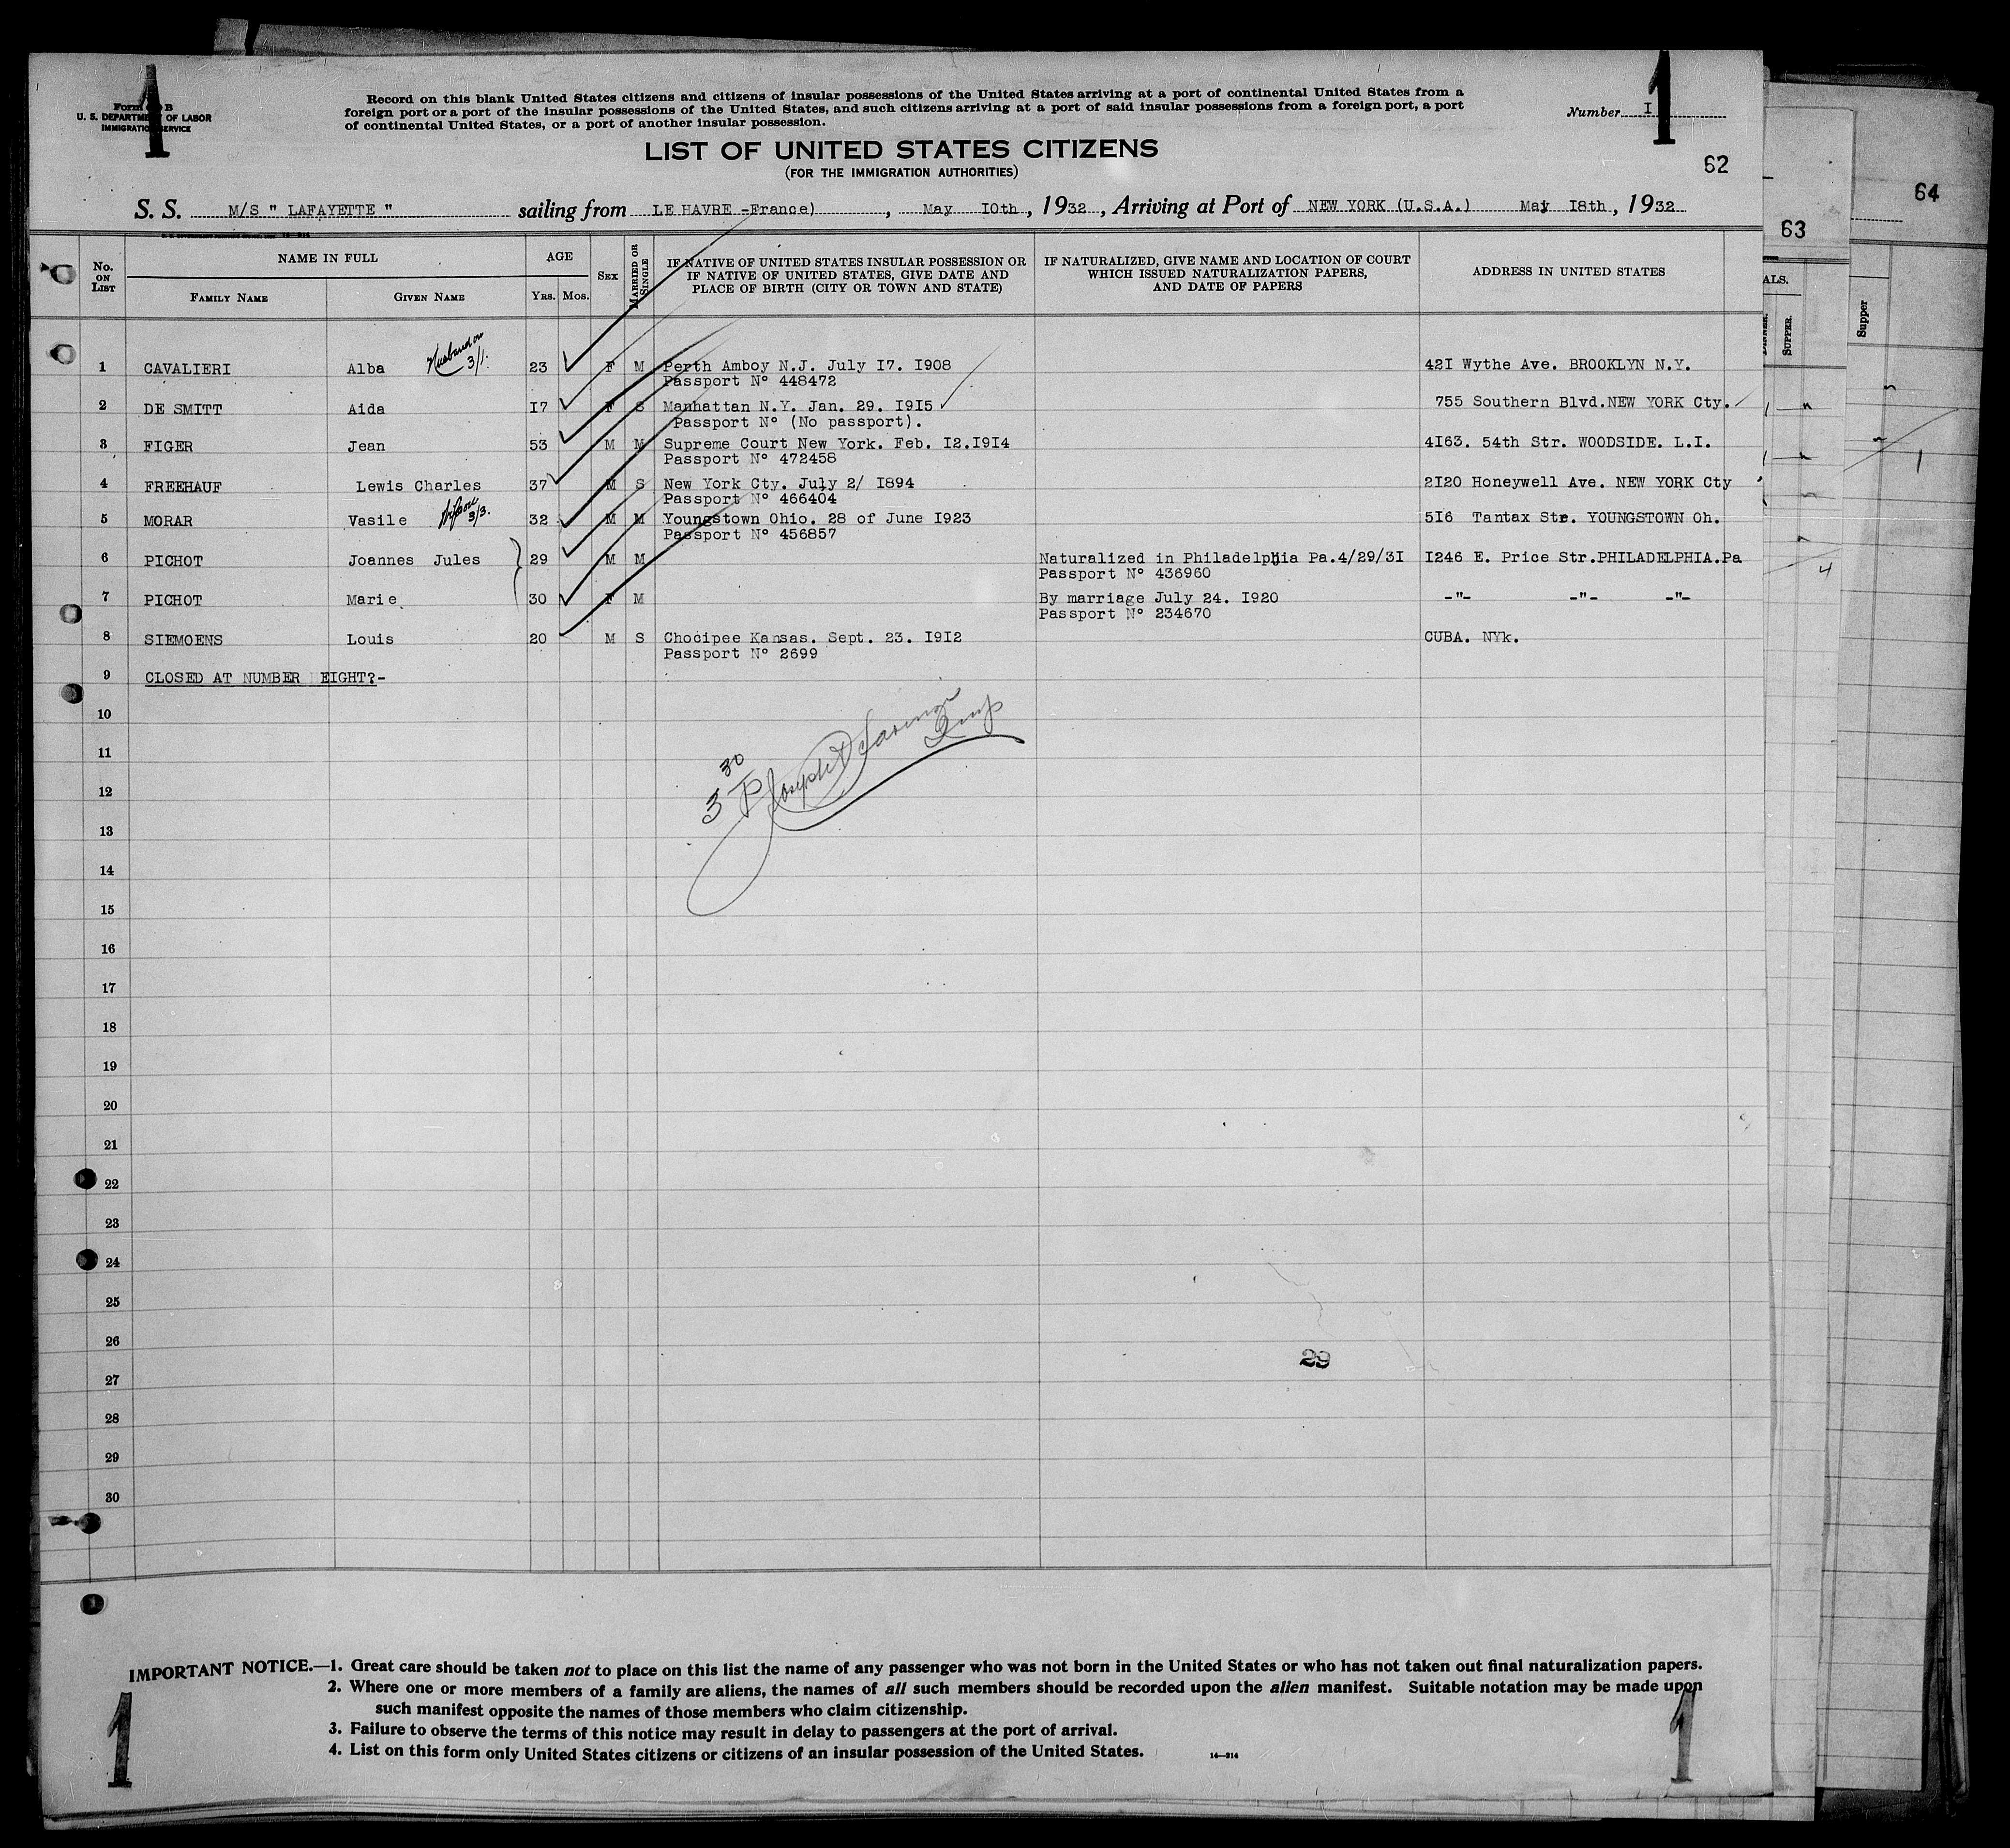 1 1
Form B
U. S. DEPARTMENT OF LABOR
IMMIGRATION SERVICE
Record on this blank United States citizens and citizens of insular possessions of the United States arriving at a port of continental United States from a
foreign port or a port of the insular possessions of the United States, and such citizens arriving at a port of said insular possessions from a foreign port, a port
of continental United States, or a port of another insular possession.
Number I
LIST OF UNITED STATES CITIZENS
(FOR THE IMMIGRATION AUTHORITIES)
62
64
63
S. S. M/S " LAFAYETTE " sailing from LE HAVRE -France) , May I0th , 1932 , Arriving at Port of NEW YORK (U.S.A.) May I8th , 1932
No. ON LIST
NAME IN FULL
FAMILY NAME GIVEN NAME
AGE
YRS. MOS.
SEX
MARRIED OR SINGLE
IF NATIVE OF UNITED STATES INSULAR POSSESSION OR
IF NATIVE OF UNITED STATES, GIVE DATE AND
PLACE OF BIRTH (CITY OR TOWN AND STATE)
IF NATURALIZED, GIVE NAME AND LOCATION OF COURT
WHICH ISSUED NATURALIZATION PAPERS,
AND DATE OF PAPERS
ADDRESS IN UNITED STATES
ALS.
SUPPER.
Supper
1 CAVALIERI Alba Husband on 3/1. 23 F M Perth Amboy N.J. July I7. I908 42I Wythe Ave. BROOKLYN N.Y.
Passport N° 448472
2 DE SMITT Aida I7 F S Manhattan N.Y. Jan. 29. I9I5 755 Southern Blvd.NEW YORK Cty.
Passport N° (No passport).
3 FIGER Jean 53 M M Supreme Court New York. Feb. I2.I9I4 4I63. 54th Str. WOODSIDE. L.I.
Passport N° 472458
4 FREEHAUF Lewis Charles 37 M S New York Cty. July 2/ I894 2I20 Honeywell Ave. NEW YORK Cty
Passport N° 466404
5 MORAR Vasile 3/3. 32 M M Youngstown Ohio. 28 of June I923 5I6 Tantax Str. YOUNGSTOWN Oh.
Passport N° 456857
6 PICHOT Joannes Jules 29 M M Naturalized in Philadelphia Pa.4/29/3I I246 E. Price Str.PHILADELPHIA.Pa
Passport N° 436960
7 PICHOT Marie 30 F M By marriage July 24. I920 -"- -"- -"-
Passport N° 234670
8 SIEMOENS Louis 20 M S Chocipee Kansas. Sept. 23. I9I2 CUBA. NYk.
Passport N° 2699
9 CLOSED AT NUMBER EIGHT?-
10
11
12
13
14
15
16
17
18
19
20
21
22
23
24
25
26
29
27
28
29
30
IMPORTANT NOTICE.—1. Great care should be taken not to place on this list the name of any passenger who was not born in the United States or who has not taken out final naturalization papers.
2. Where one or more members of a family are aliens, the names of all such members should be recorded upon the alien manifest. Suitable notation may be made upon
such manifest opposite the names of those members who claim citizenship.
3. Failure to observe the terms of this notice may result in delay to passengers at the port of arrival.
4. List on this form only United States citizens or citizens of an insular possession of the United States. 14—314
1 1